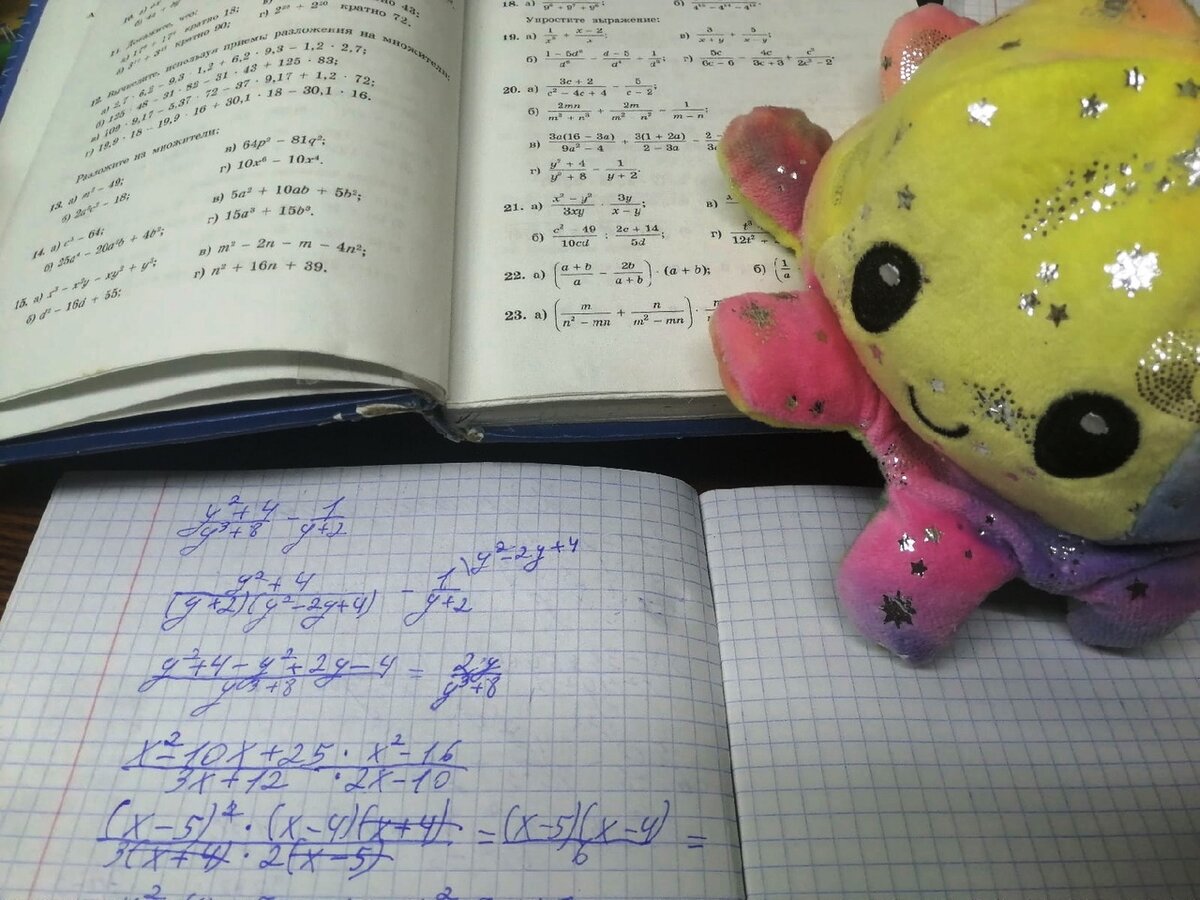 11. Докажите, что:
кратно 18;
кратно 43;
кратно 90;
кратно 72.
12. Вычислите, используя приемы разложения на множители:
а) 2,7 · 6,2 − 9,3 · 1,2 + 6,2 · 9,3 − 1,2 · 2,7;
б) 125 · 48 − 31 · 82 − 31 · 43 + 125 · 83;
в) 109 · 9,17 − 5,37 · 72 − 37 · 9,17 + 1,2 · 72;
г) 19,9 · 18 − 19,9 · 16 + 30,1 · 18 − 30,1 · 16.
Разложите на множители:
13. а) m² − 49;
в) 64p² − 81q²;
б) 2a²c² − 18;
г) 10x⁶ − 10x⁴.
14. а) c³ − 64;
в) 5a² + 10ab + 5b²;
б) 25a⁴ − 20a²b + 4b²;
г) 15a³ + 15b³.
15. а) x³ − x²y − xy² + y³;
в) m² − 2n − m − 4n²;
б) d² − 16d + 55;
г) n² + 16n + 39.
18. а)
б)
Упростите выражение:
19. а) 1/x³ + (x − 2)/x;
в) 3/(x + y) + 5/(x − y);
б)
г) 5c/(6c − 6) − 4c/(3c + 3) + c²/(2c² − 2)
20. а) (3c + 2)/(c² − 4c + 4) − 5/(c − 2);
б) 2mn/(m³ + n³) + 2m/(m² n²) − 1/(m − n);
в) 3a(16 − 3a)/(9a² − 4) + 3(1 + 2a)/(2 − 3a)
г) (y² + 4)/(y³ + 8) − 1/(y + 2).
21. а) (x² − y²)/3xy · 3y/(x − y);
в)
б) (c² − 49)/10cd : (2c + 14)/5d;
г)
22. а) ((a + b)/a − 2b/(a + b)) · (a + b);
б)
23. а) (m/(n² − mn) + n/(m² − mn)) ·
(y²+4)/(y³+8) − 1/(y+2)
(y²+4)/((y+2)(y²−2y+4)) − 1/(y+2) y²−2y+4
(y²+4−y²+2y−4)/(y³+8) = 2y/(y³+8)
(x²−10x+25 · x²−16)/(3x+12 · 2x−10)
((x−5)² · (x−4)(x+4))/(3(x+4) · 2(x−5)) = (x−5)(x−4)/6 =